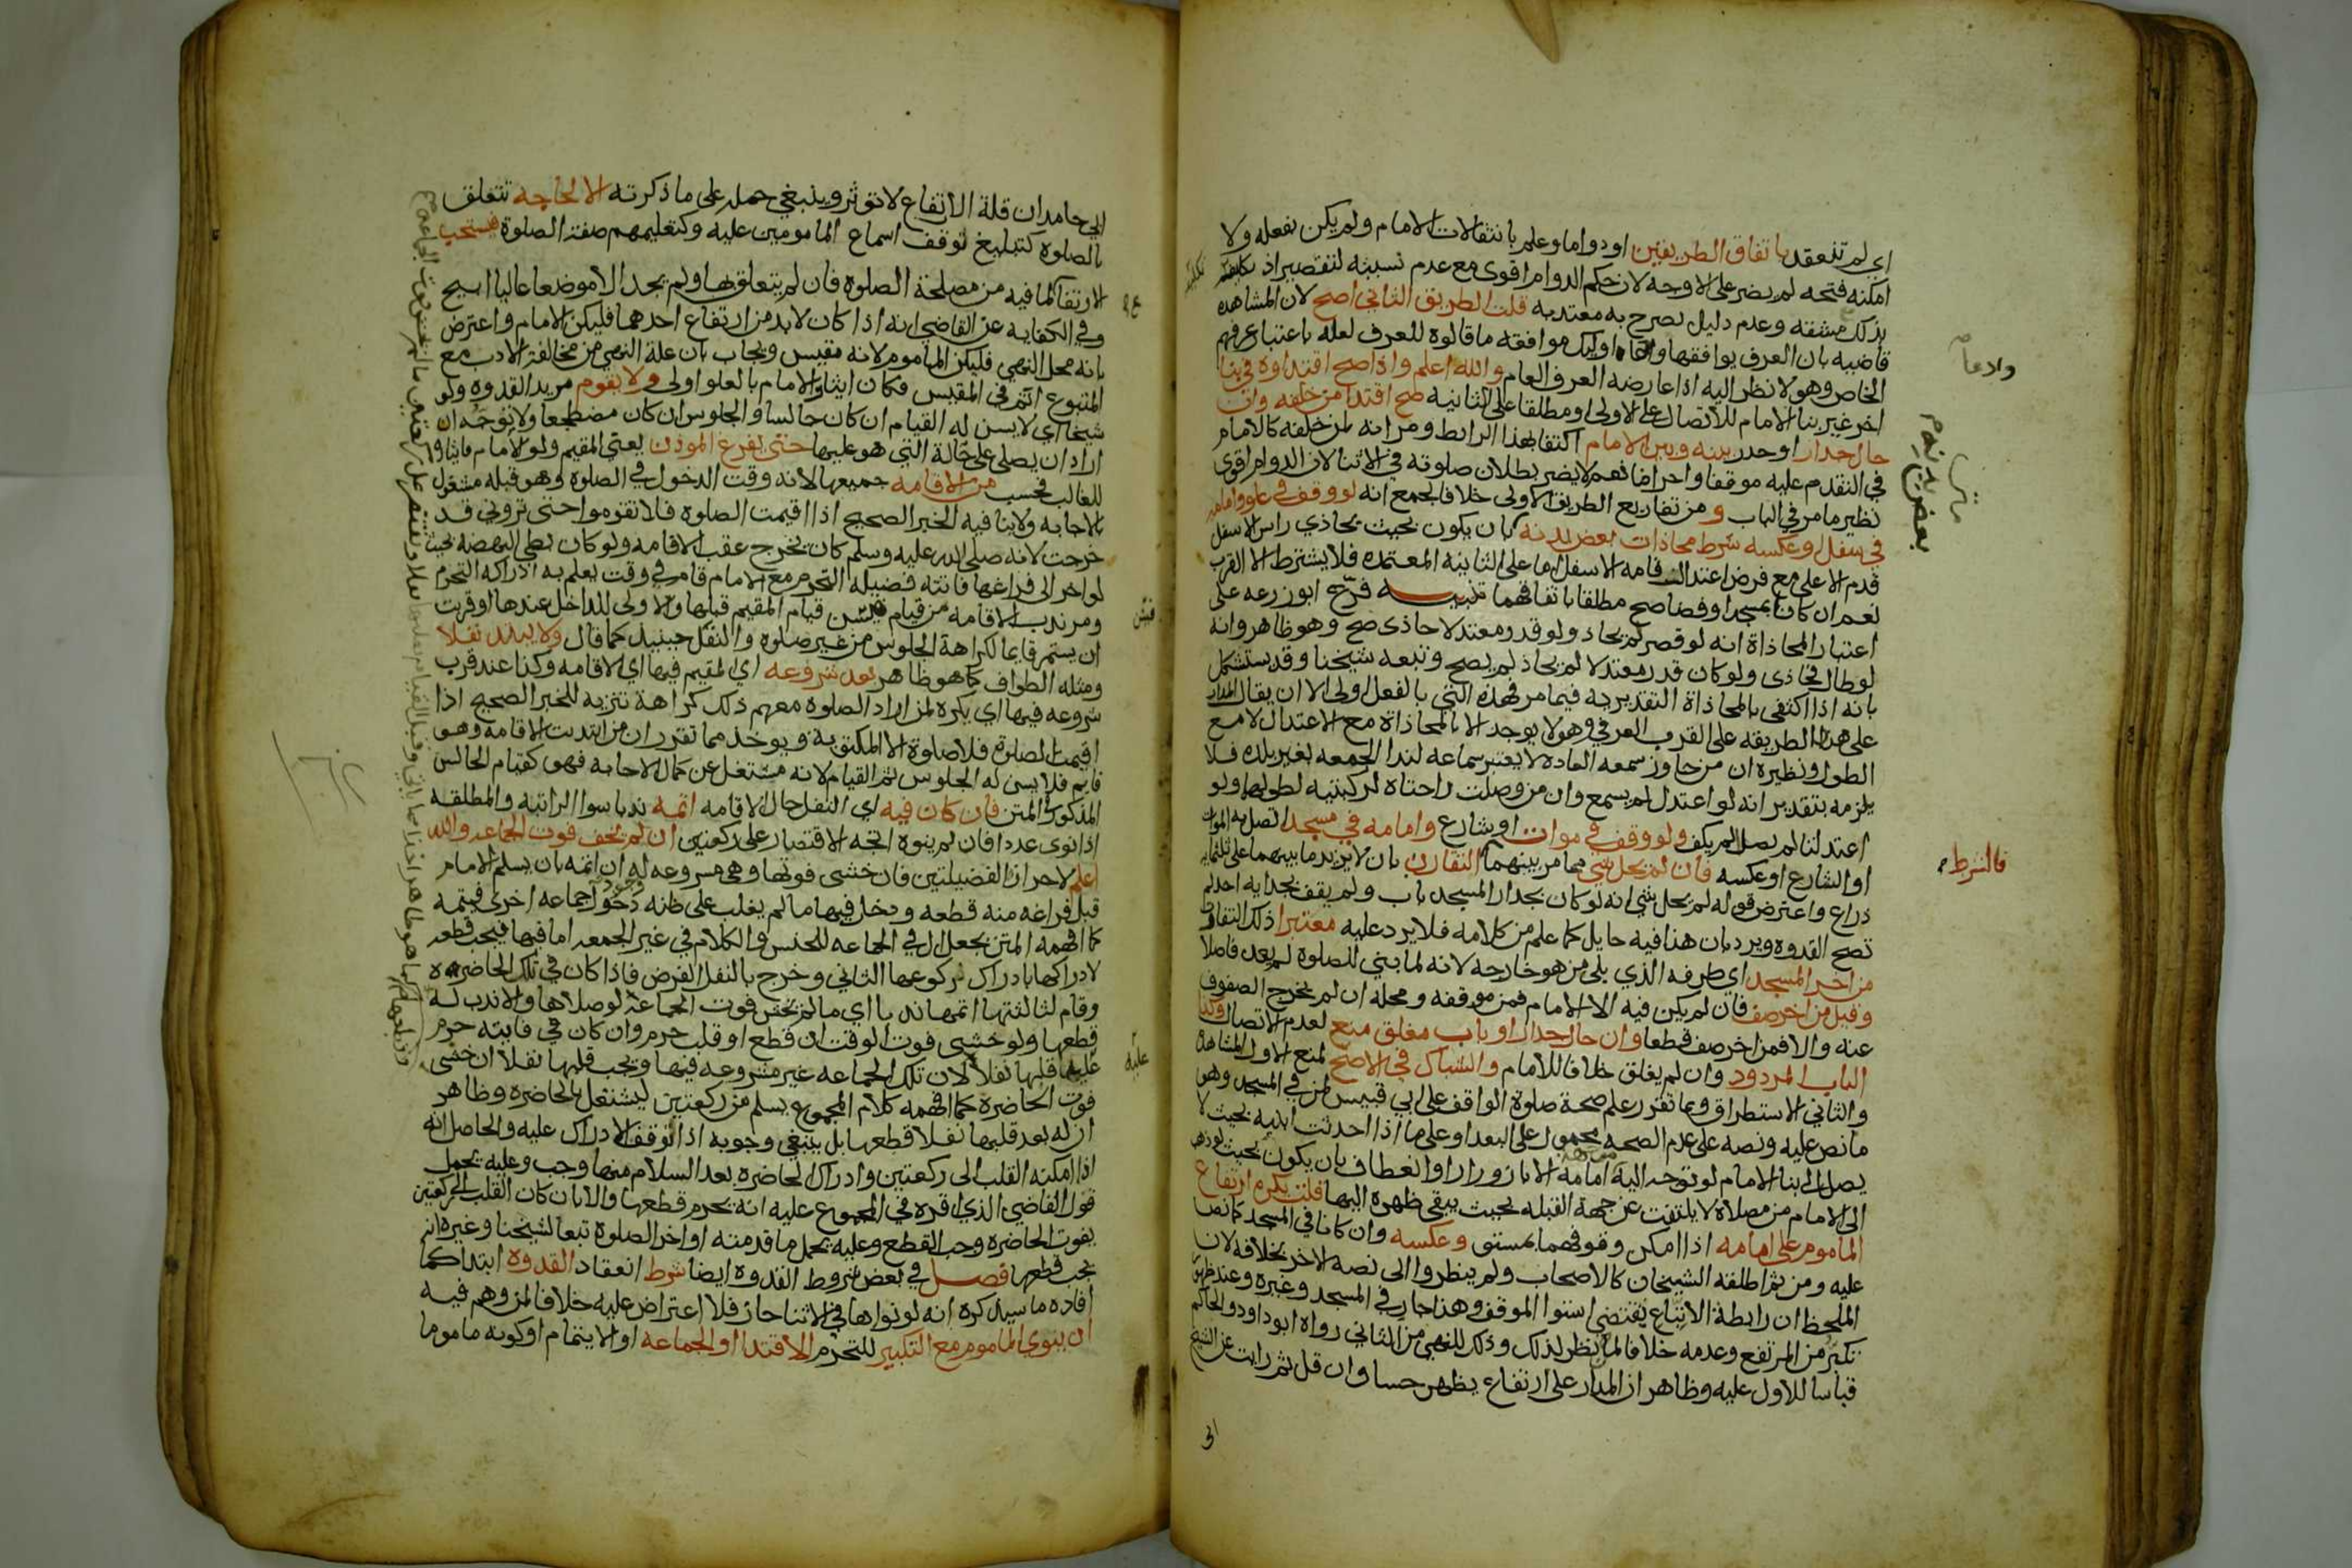 اي لم تنعقد باتفاق الطريقين او دواما وعلم بانتقالات الامام ولم يكن بفعله ولا
امكنه فتحه لم يضر على الاوجه لان حكم الدوام اقوى مع عدم نسبته لتقصير اذ تكليفه
بذلك مشقه وعدم دليل يصرح به معتد به قلت الطريق الثاني اصح لان المشاهده
قاضيه بان العرف يوافقها وادعا اوليك موافقه ما قالوه للعرف لعله باعتبار عرفهم
الخاص وهو لا نظر اليه اذا عارضه العرف العام والله اعلم واذا صح اقتداوه في بنا
اخر غير بنا الامام للاتصال على الاولى او مطلقا على الثانيه صح اقتدا من خلفه وان
حال جدار او جدر بينه وبين الامام اكتفا بهذا الرابط ومر انه لمن خلفه كالامام
في التقدم عليه موقفا واحراما نعم لا يضر بطلان صلوته في الاثنا لان الدوام اقوى
نظير ما مر في الباب و من تفاريع الطريق الاولى خلافا لجمع انه لو وقف في علو وامامه
في سفل او عكسه شرط محاذات بعض بدنه بان يكون بحيث يحاذي راس الاسفل
قدم الاعلى مع فرض اعتدال قامه الاسفل اما على الثانية المعتمده فلا يشترط الا القرب
نعم ان كانا بمسجد او فضا صح مطلقا باتفاقهما تنبيه فرّع ابو زرعه على
اعتبار المحاذاة انه لو قصر لم يحاذ ولو قدر معتدلا حاذى صح وهو ظاهر وانه
لو طال فحاذى ولو كان قدر معتدلا لم يحاذ لم يصح وتبعه شيخنا وقد يستشكل
بانه اذا اكتفى بالمحاذاة التقديريه فيما مر فهذه التي بالفعل اولى الا ان يقال المدار
على هذا الطريقه على القرب العرفي وهو لا يوجد الا بالمحاذاة مع الاعتدال لا مع
الطول ونظيره ان من جاوز سمعه العاده لا يعتبر سماعه لندا الجمعه بغير بلده فلا
يلزمه بتقدير انه لو اعتدل لم يسمع وان من وصلت راحتاه لركبتيه لطولهما ولو
اعتدلتا لم يصل لم يكف ولو وقف في موات او شارع وامامه في مسجد اتصل به الموات
او الشارع او عكسه فان لم يحل شي مما مر بينهما التقارب بان لا يزيد ما بينهما على ثلثمايه
ذراع واعترض قوله لم يحل شي انه لو كان بجدار المسجد باب ولم يقف بحذايه احد لم
تصح القدوه ويرد بان هذا فيه حايل كما علم من كلامه فلا يرد عليه معتبرا ذلك التقارب
من اخر المسجد اي طرفه الذي يلي من هو خارجه لانه لما بني للصلوة لم يعد فاصلا
وقيل من اخر صف فان لم يكن فيه الا الامام فمن موقفه ومحله ان لم يخرج الصفوف
عنه والا فمن اخر صف قطعا وان حال جدار او باب مغلق منع لعدم الاتصال وكذا
الباب المردود وان لم يغلق خلافا للامام والشباك في الاصح لمنع الاول المشاهده
والثاني الاستطراق ومما تقرر علم صحة صلوة الواقف على ابي قبيس بمن في المسجد وهو
ما نص عليه ونصه على عدم الصحه محمول على البعد او على ما اذا احدثت ابنيه بحيث لا
يصل الى بنا الامام لو توجه اليه امامه الا بازورار او انعطاف بان يكون بحيث لو ذهب
الى الامام من مصلاه لا يلتفت عن جهة القبله بحيث يبقى ظهره اليها قلت يكره ارتفاع
الماموم على امامه اذا امكن وقوفهما بمستو وعكسه وان كانا في المسجد كما نصا
عليه ومن ثم اطلقه الشيخان كالاصحاب ولم ينظروا الى نصه الاخر بخلافه لان
الملحظ ان رابطة الاتباع يقتضي استوا الموقف وهذا جار في المسجد وغيره
تكبر من المرتفع وعدمه خلافا لمن نظر لذلك وذلك للنهي من الثاني رواه ابو داود والحاكم
قياسا للاول عليه وظاهر ان المدار على ارتفاع يظهر حسا وان قل ثم رايت عن الشيخ
ابي
وادعا
بعض بدنه
فالشرط
ابي حامد ان قلة الارتفاع لا تؤثر وينبغي حمله على ما ذكرته الا لحاجه تتعلق
بالصلوه كتبليغ توقف اسماع المامومين عليه وكتعليمهم صفة الصلوة فيستحب
الارتفاع لما فيه من مصلحة الصلوه فان لم يتعلق بها ولم يجد الا موضعا عاليا ابيح
وفي الكفايه عن القاضي انه اذا كان لا بد من ارتفاع احدهما فليكن الامام واعترض
بانه محل النهي فليكن الماموم لانه مقيس ويجاب بان علة النهي من مخالفة الادب مع
المتبوع اتم في المقيس فكان ايثار الامام بالعلو اولى ولا يقوم مريد القدوه ولو
شيخا اي لا يسن له القيام ان كان جالسا والجلوس ان كان مضطجعا ولا توجه ان
اراد ان يصلي على حالة التي هو عليها حتى يفرغ الموذن يعني المقيم ولو الامام فايثاره
للغالب فحسب من الاقامه جميعها لانه وقت الدخول في الصلوة وهو قبله مشغول
بالاجابه ولا ينافيه الخبر الصحيح اذا اقيمت الصلوه فلا تقوموا حتى تروني قد
خرجت لانه صلى الله عليه وسلم كان يخرج عقب الاقامه ولو كان بطي النهضه بحيث
لو اخر الى فراغها فاتته فضيله التحرم مع الامام قام في وقت يعلم به ادراكه التحرم
ومر ندب الاقامه من قيام فيسن قيام المقيم قبلها والاولى للداخل عندها او قربت
ان يستمر قايما لكراهة الجلوس من غير صلوه والنفل حينيذ كما قال ولا يبتدئ نفلا
ومثله الطواف كما هو ظاهر بعد شروعه اي المقيم فيها اي الاقامه وكذا عند قرب
شروعه فيها اي يكره لمن اراد الصلوه معهم ذلك كراهة تنزيه للخبر الصحيح اذا
اقيمت الصلوة فلا صلوة الا المكتوبة ويوخذ مما تقرر ان من ابتديت الاقامه وهو
قايم فلا يسن له الجلوس ثم القيام لانه مشتغل عن كمال الاجابه فهو كقيام الجالس
المذكور في المتن فان كان فيه اي النفل حال الاقامه اتمه ندبا سوا الراتبه والمطلقه
اذا نوى عددا فان لم ينوه اتجه الاقتصار على ركعتين ان لم يخف فوت الجماعه والله
اعلم لاحراز الفضيلتين فان خشي فوتها وهي مشروعه له ان اتمه بان يسلم الامام
قبل فراغه منه قطعه ودخل فيها ما لم يغلب على ظنه وجود جماعه اخرى فيتمه
كما افهمه المتن بجعل ال في الجماعه للجنس والكلام في غير الجمعه اما فيها فيجب قطعه
لادراكها بادراك ركوعها الثاني وخرج بالنفل الفرض فاذا كان في تلك الحاضره
وقام لثالثتها اتمها ندبا اي ما لم يخش فوت الجماعة لو صلاها والا ندب له
قطعها ولو خشي فوت الوقت ان قطع او قلب حرم وان كان في فايته حرم
عليه قلبها نفلا لان تلك الجماعه غير مشروعه فيها ويجب قلبها نفلا ان خشي
فوت الحاضرة كما افهمه كلام المجموع يسلم من ركعتين ليشتغل بالحاضره وظاهر
ان له بعد قلبها نفلا قطعها بل ينبغي وجوبه اذا توقف الادراك عليه والحاصل انه
اذا امكنه القلب الى ركعتين وادراك الحاضره بعد السلام منها وجب وعليه يحمل
قول القاضي الذي اقره في المجموع عليه انه يحرم قطعها والا بان كان القلب لركعتين
يفوت الحاضره وجب القطع وعليه يحمل ما قدمته اواخر الصلوة تبعا لشيخنا وغيره انه
يجب قطعها فصل في بعض شروط القدوه ايضا شرط انعقاد القدوه ابتدا كما
افاده ما سيذكره انه لو نواها في الاثنا جاز فلا اعتراض عليه خلافا لمن وهم فيه
ان ينوي الماموم مع التكبير للتحرم الاقتدا او الجماعه او الايتمام او كونه ماموما
عليه